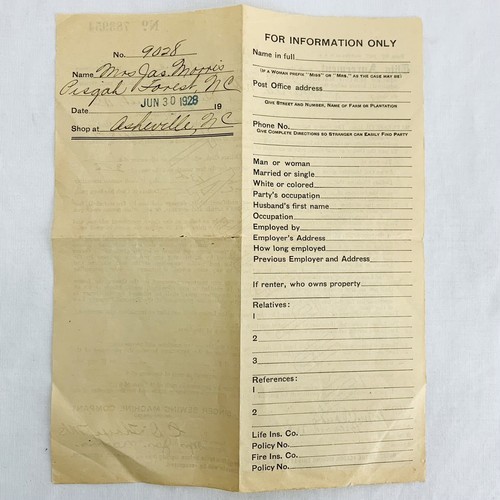 No. 9028
Name Mrs Jas. Morris
Pisgah Forest, NC
Date JUN 30 1928 19
Shop at Asheville, NC
FOR INFORMATION ONLY
Name in full
(IF A WOMAN PREFIX "MISS" OR "MRS." AS THE CASE MAY BE)
Post Office address
GIVE STREET AND NUMBER, NAME OF FARM OR PLANTATION
Phone No.
GIVE COMPLETE DIRECTIONS SO STRANGER CAN EASILY FIND PARTY
Man or woman
Married or single
White or colored
Party's occupation
Husband's first name
Occupation
Employed by
Employer's Address
How long employed
Previous Employer and Address
If renter, who owns property
Relatives:
1
2
3
References:
1
2
Life Ins. Co.
Policy No.
Fire Ins. Co.
Policy No.